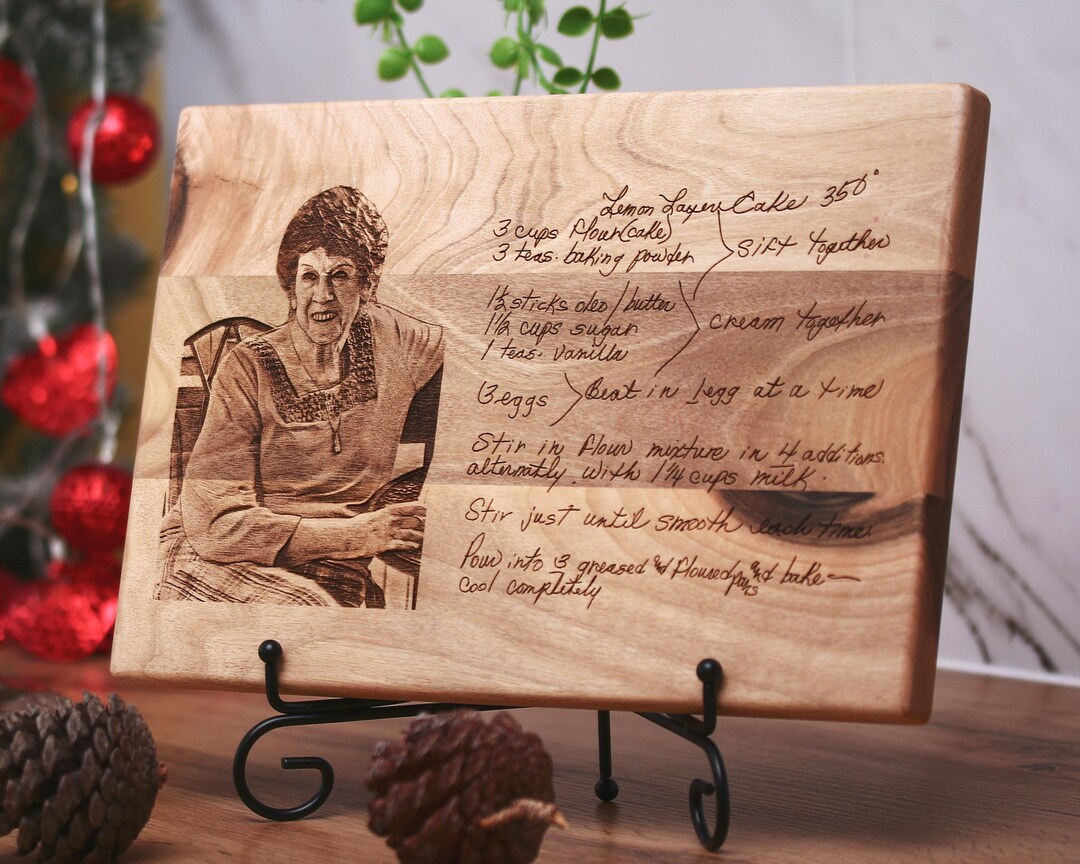 Lemon Layer Cake 350°
3 cups flour (cake)
3 teas. baking powder
Sift together
1½ sticks oleo / butter
1½ cups sugar
1 teas. vanilla
cream together
3 eggs
Beat in 1 egg at a time
Stir in flour mixture in 4 additions.
alternatly with 1¼ cups milk.
Stir just until smooth each time.
Pour into 3 greased and floured pans and bake—
Cool completely